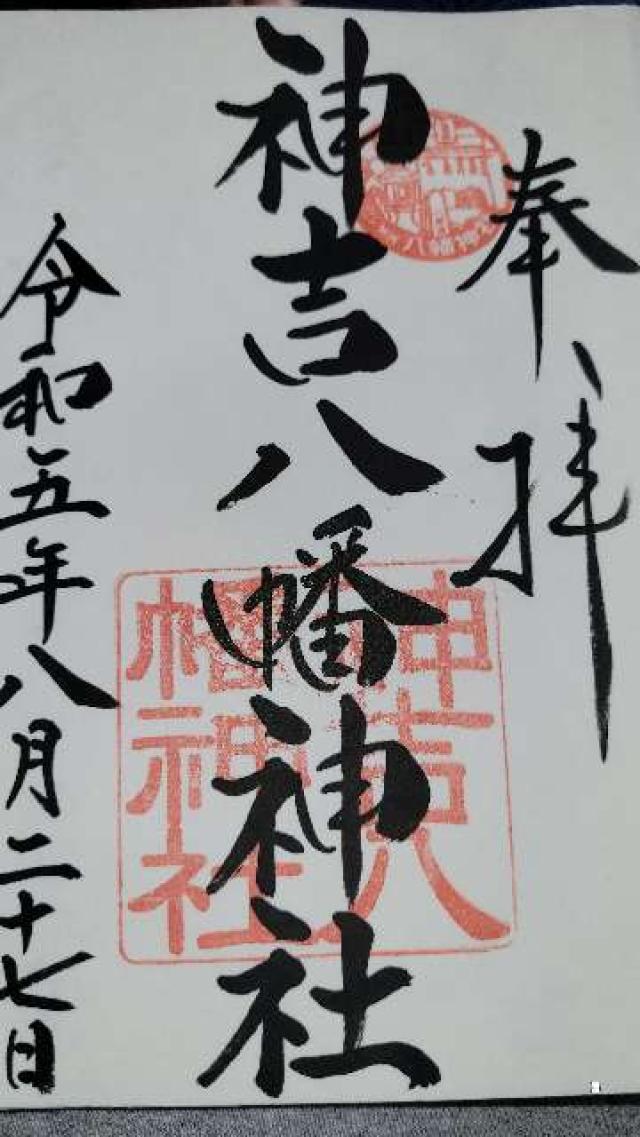 奉拝
神吉八幡神社
神吉八
幡神社
令和五年八月二十七日